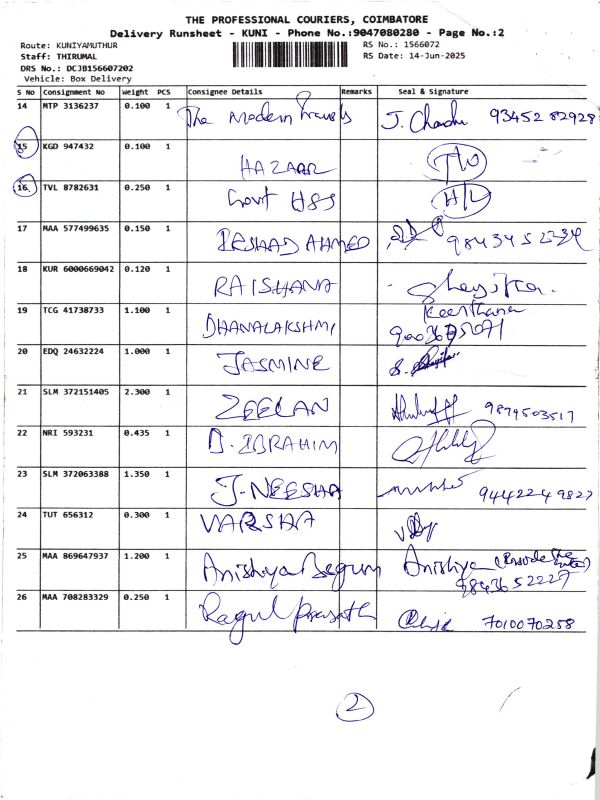 THE PROFESSIONAL COURIERS, COIMBATORE
Delivery Runsheet - KUNI - Phone No.:9047080280 - Page No.:2
Route: KUNIYAMUTHUR RS No.: 1566072
Staff: THIRUMAL RS Date: 14-Jun-2025
DRS No.: DCJB156607202
Vehicle: Box Delivery
S No Consignment No Weight PCS Consignee Details Remarks Seal & Signature
14 MTP 3136237 0.100 1 The Modern Travels J. Chandu 93452 82928
15 KGD 947432 0.100 1 HAZAAR
16 TVL 8782631 0.250 1 Govt HSS H/L
17 MAA 577499635 0.150 1 IRSHAD AHMED
18 KUR 6000669042 0.120 1 RAISHANA
19 TCG 41738733 1.100 1 DHANALAKSHMI Keerthana
20 EDQ 24632224 1.000 1 JASMINE
21 SLM 372151405 2.300 1 ZEELAN 9894503517
22 NRI 593231 0.435 1 D. IBRAHIM
23 SLM 372063388 1.350 1 J-NEESHA 9442249827
24 TUT 656312 0.300 1 VARSHA
25 MAA 869647937 1.200 1 Anishya Begum Anishya
9843652227
26 MAA 708283329 0.250 1 Ragul Prasath 7010070258
2